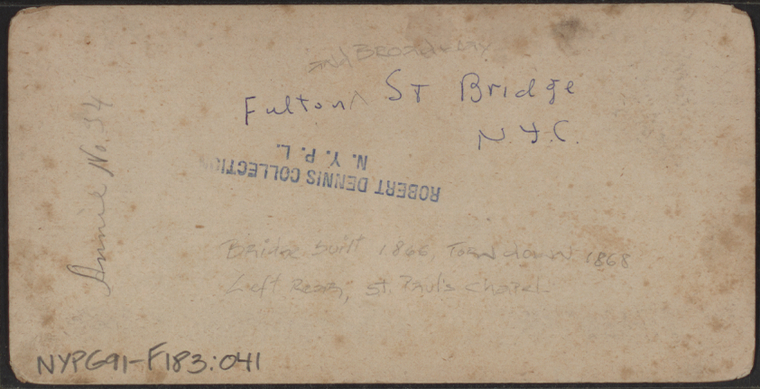 and Broadway
Fulton ^ St Bridge
N.Y.C.
ROBERT DENNIS COLLECTION
N. Y. P. L.
No. 34
Bridge built 1866, Torn down 1868
Left Rear, St. Paul's Chapel
NYPG91-F183:041